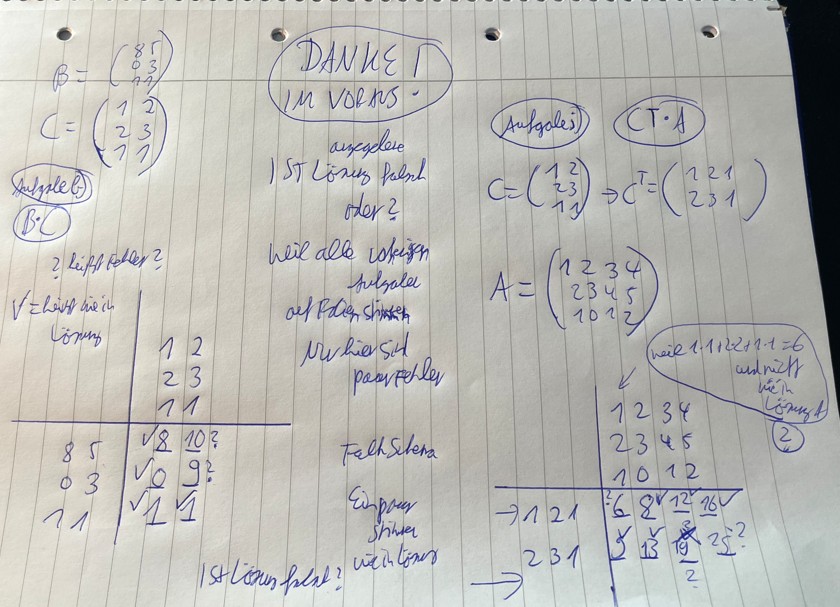 B = ( 8 5
0 3
1 1 )
C = ( 1 2
2 3
1 1 )
Aufgabe
B·C
? heißt Fehler?
✓ = heißt mein
Lösung
1 2
2 3
1 1
8 5 ✓8 10?
0 3 ✓0 9?
1 1 ✓1 ✓1
DANKE!
IM VORAUS.
IST Lösung falsch
oder?
weil alle
Aufgaben
auf Folien stimmen
Nur hier sind
paar Fehler
Falk Schema
Ein paar
stimmen
mein Lösung
Ist Lösung falsch?
Aufgabe j)
CT·A
C = ( 1 2
2 3
1 1 ) → CT = ( 1 2 1
2 3 1 )
A = ( 1 2 3 4
2 3 4 5
1 0 1 2 )
weil 1·1+2·2+1·1=6
und nicht
mein
Lösung
?
1 2 3 4
2 3 4 5
1 0 1 2
→ 1 2 1 ?6 8✓ 12✓ 16✓
2 3 1 9✓ 13✓ 19 25?
?
→